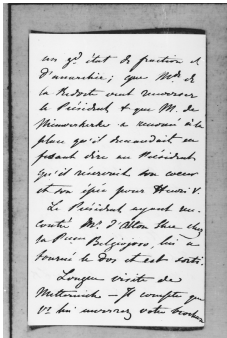 un gd état de faction et
d'anarchie; que Mr de
la Redorte veut renverser
le Président & que M. de
Nieuwerkerke a renoncé à la
place qu'il demandait, en
faisant dire au Président
qu'il réservait son cœur
et son épée pour Henri V.
Le Président ayant ren-
contré Mr d'Alton Shee chez
la Psse Belgiojoso, lui a
tourné le dos et est sorti.
Longue visite de
Metternich – Il compte que
vs lui enverrez votre brochure